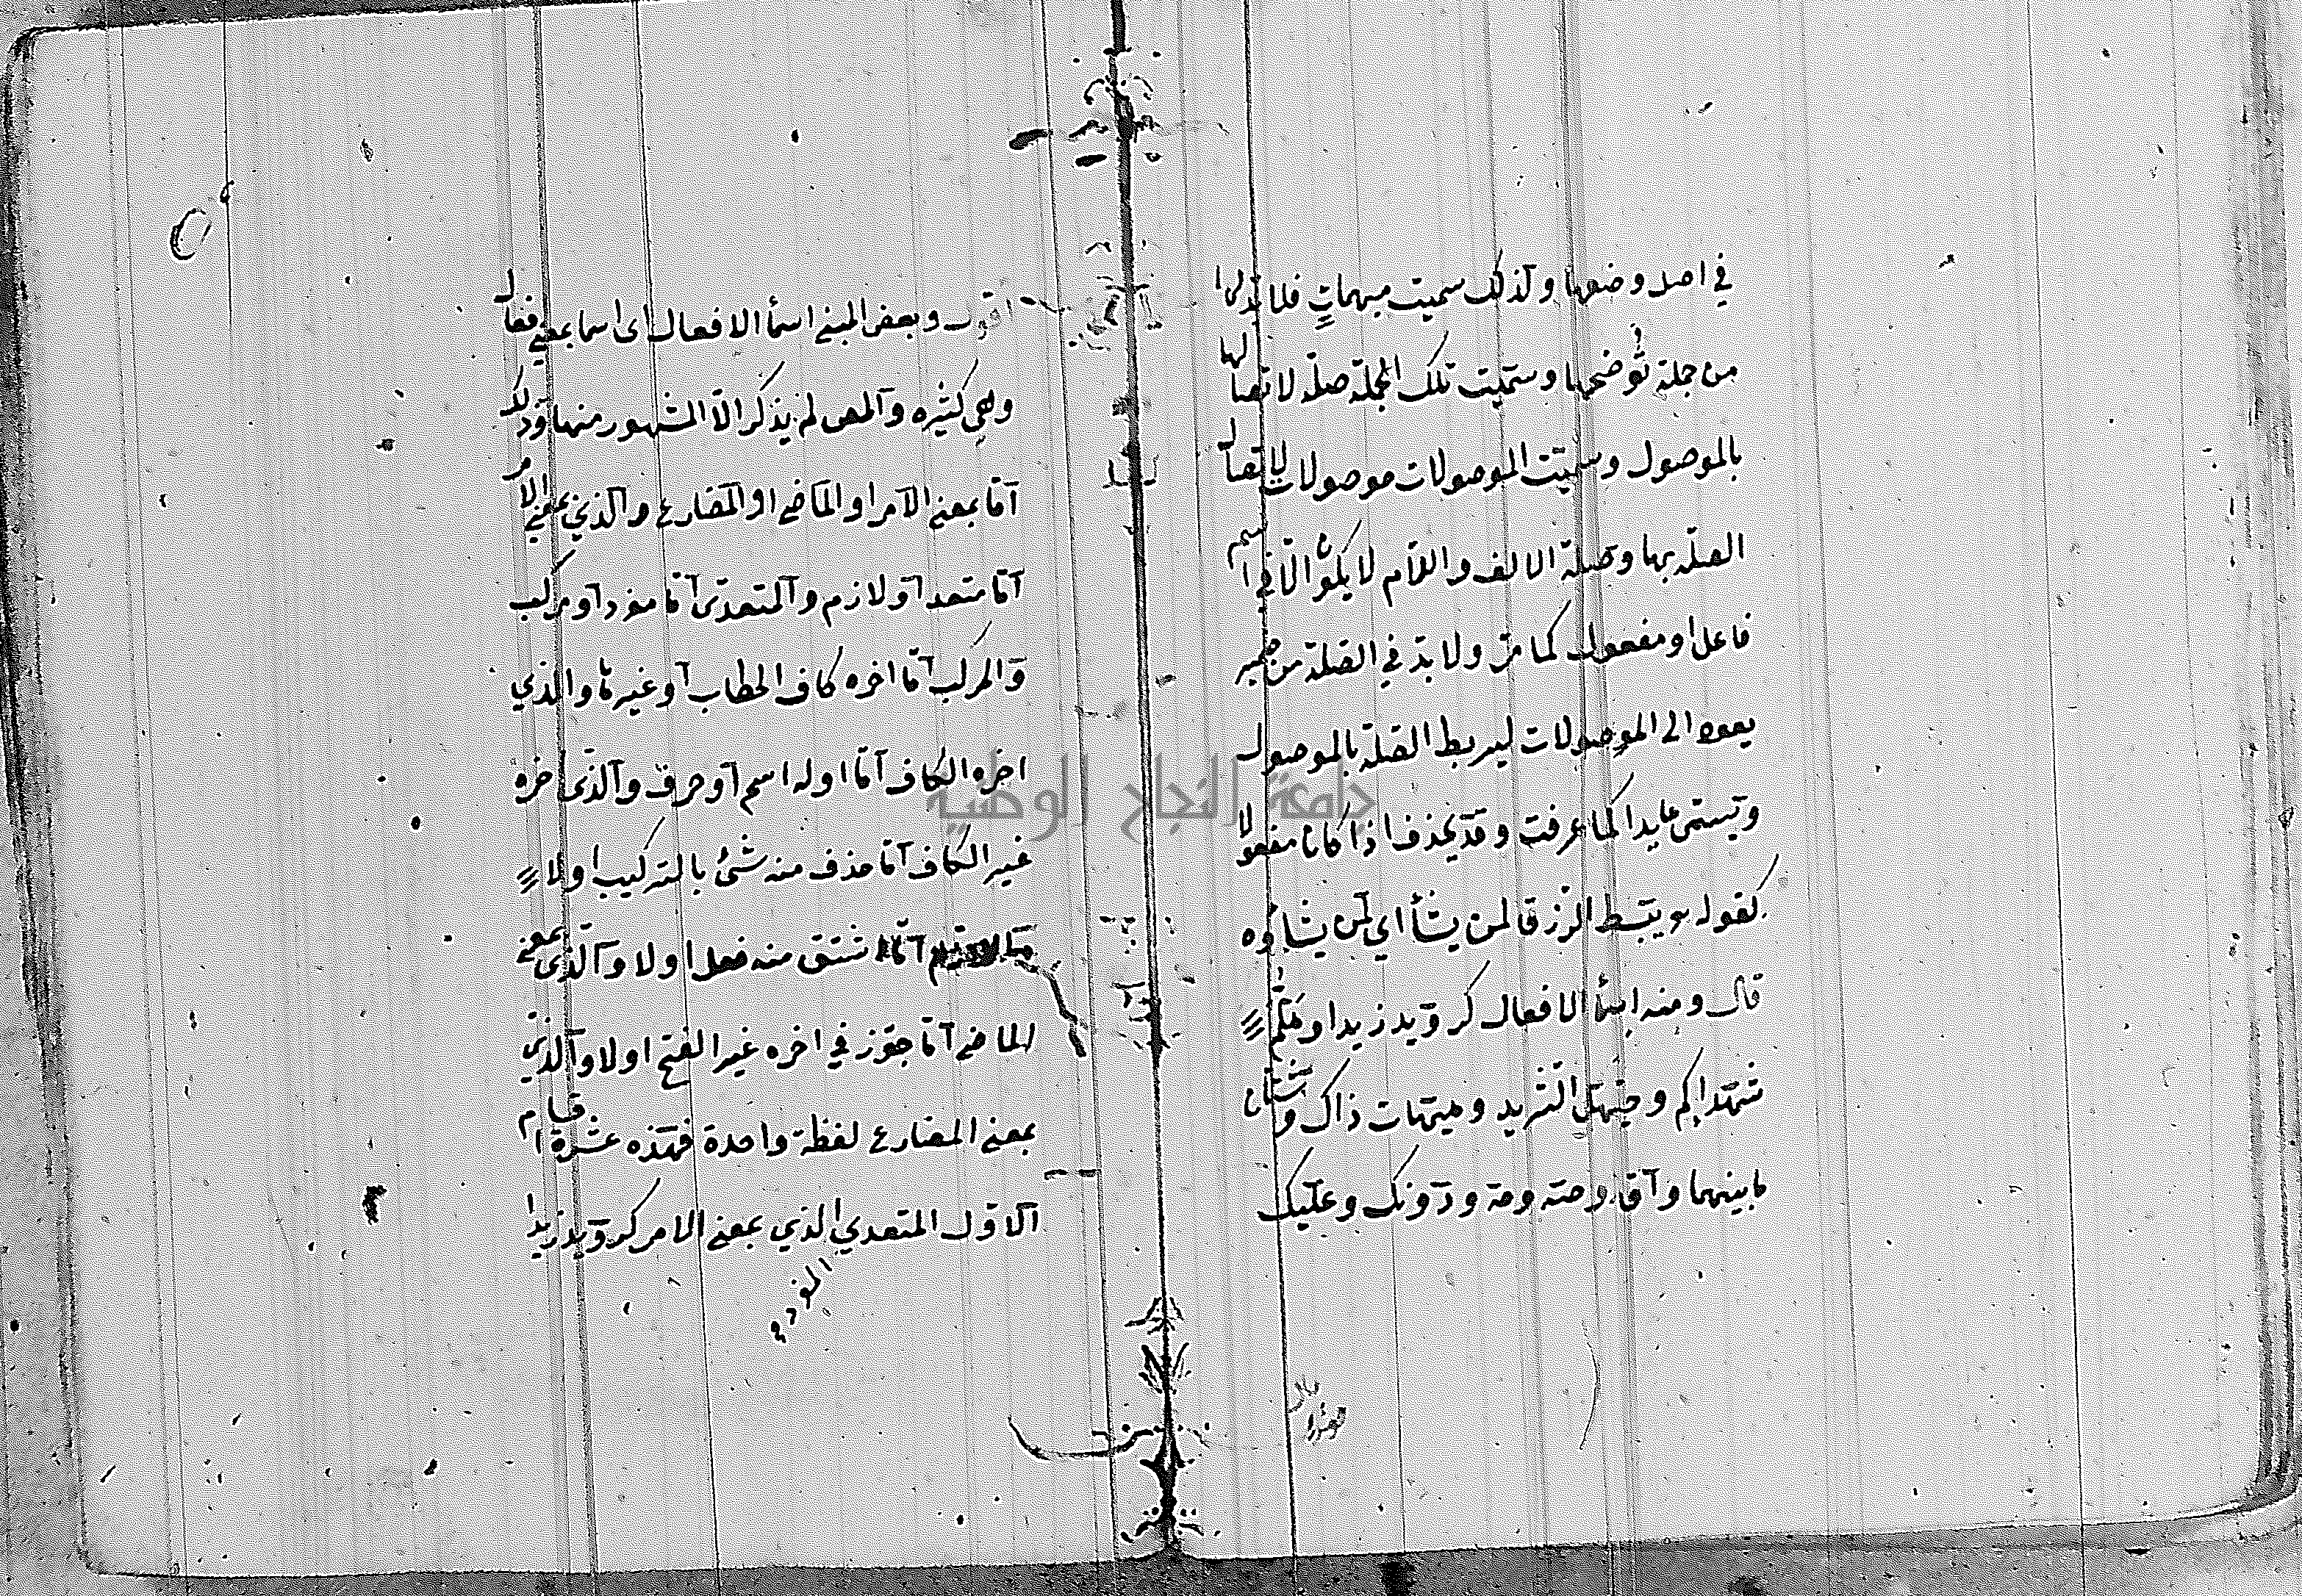 في اصل وضعها ولذلك سميت مبهمات فلا بد لها
من جملة توضحها وسميت تلك الجملة صلة لاتصالها
بالموصول وسميت الموصولات موصولات لاتصال
الصلة بها وصلة الالف واللام لا يكون الا في اسم
فاعل او مفعول كما مر ولا بد في الصلة من ضمير
يعود الى الموصولات ليربط الصلة بالموصول
ويسمى عايدا كما عرفت وقد يحذف اذا كان مفعولا
كقوله يبسط الرزق لمن يشأ اي لمن يشاؤه
قال ومنه اسمأ الافعال كرويد زيدا وهلم
شهداكم وحيهل الثريد وهيهات ذاك وشتان
مابينهما واف وصه ومه ودونك وعليك
اقول وبعض المبني اسمأ الافعال اى اسما بمعنى فعال
وهي كثيره والمص لم يذكر الا المشهور منها وذلك
اما بمعنى الامر او الماضي او المضارع والذي بمعنى الامر
اما متعد او لازم والمتعدى اما مفرد او مركب
والمركب اما اخره كاف الخطاب او غيرها والذي
اخره الكاف اما اوله اسم او حرف والذى اخره
غير الكاف اما حذف منه شئ بالتركيب اولا
واللازم اما اشتق منه فعل اولا والذى بمعنى
الماضي اما جوز في اخره غير الفتح اولا والذي
بمعنى المضارع لفظة واحدة فهذه عشرة اقسام
الاول المتعدي الذي بمعنى الامر كرويد زيدا
المفرد
جامعة النجاح الوطنية